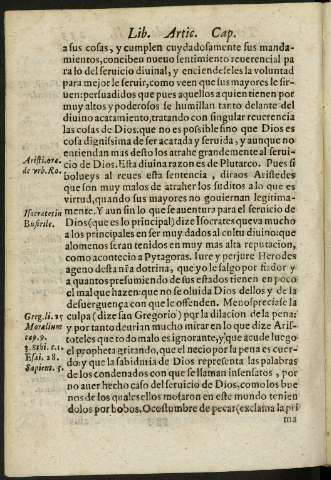 Lib. Artic. Cap.
a sus cosas, y cumplen cuydadosamente sus manda-
mientos, conciben nueuo sentimiento reuerencial pa
ra lo del seruicio diuinal, y enciendeseles la voluntad
para mejor le seruir, como veen que sus mayores le sir-
uen: persuadidos que pues aquellos a quien tienen por
muy altos y poderosos se humillan tanto delante del
diuino acatamiento, tratando con singular reuerencia
las cosas de Dios, que no es posible sino que Dios es
cosa dignissima de ser acatada y seruida, y aunque no
entiendan mas desto los atrahe grandemente al serui-
cio de Dios. Esta diuina razon es de Plutarco. Pues si
Aristi.ora.
de vrb. Ro.
bolueys al reues esta sentencia, diraos Aristedes
que son muy malos de atraher los suditos a lo que es
virtud, quando sus mayores no gouiernan legitima-
mente. Y aun sin lo que se auentura para el seruicio de
Isocrates in
Busirile.
Dios (que es lo principal) dize Isocrates que va mucho
a los principales en ser muy dados al cultu diuino: que
alomenos seran tenidos en muy mas alta reputacion,
como acontecio a Pytagoras. Iure y perjure Herodes
ageno desta nia dotrina, que yo le salgo por fiador y
a quantos presumiendo de sus estados tienen en poco
el mal que hazen: que no se oluida Dios dellos y de la
desuerguença con que le offenden. Menospreciase la
Greg. li. 25
Moralium
cap. 9.
culpa (dize san Gregorio) por la dilacion de la pena:
y por tanto deurian mucho mirar en lo que dize Aris-
toteles que todo malo es ignorante, y que acude luego
3. Ethi. c.1.
Esai. 28.
Sapient. 5.
el propheta gritando, que el necio por la pena es cuer-
do: y que la sabiduria de Dios representa las palabras
de los condenados con que se llaman insensatos, por
no auer hecho caso del seruicio de Dios, como los bue
nos de los quales ellos mofaron en este mundo tenien
dolos por bobos. O costumbre de pecar (exclama la pri
ma